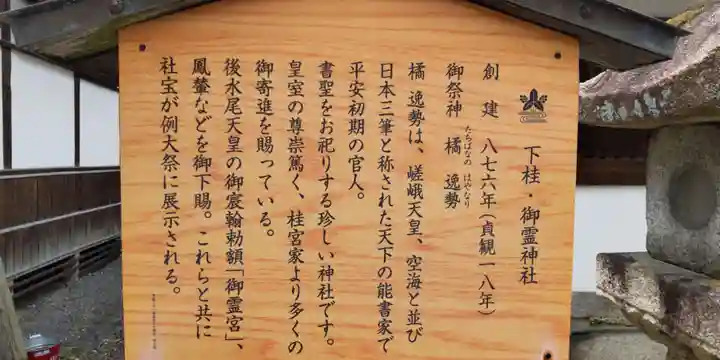 下桂・御霊神社
創建 八七六年(貞観一八年)
御祭神 橘 逸勢
たちばなの はやなり
橘 逸勢は、嵯峨天皇、空海と並び
日本三筆と称された天下の能書家で
平安初期の官人。
書聖をお祀りする珍しい神社です。
皇室の尊崇篤く、桂宮家より多くの
御寄進を賜っている。
後水尾天皇の御宸翰勅額「御霊宮」、
鳳輦などを御下賜。これらと共に
社宝が例大祭に展示される。